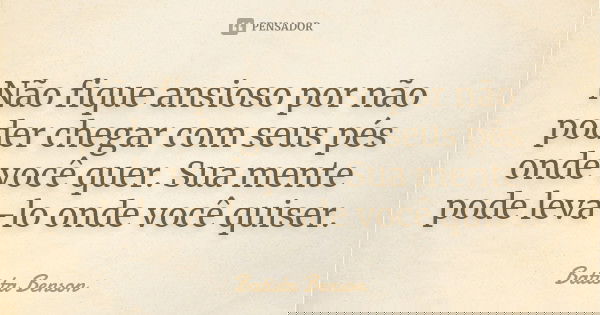 PENSADOR
Não fique ansioso por não
poder chegar com seus pés
onde você quer. Sua mente
pode leva-lo onde você quiser.
Batista Benson